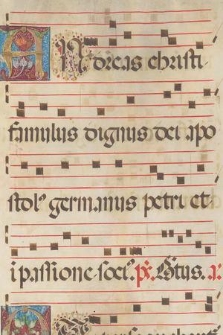 Andreas christi
famulus dignus dei apo
stol' germanus petri et
i passione soci'. p̄s. Gl'us. a.